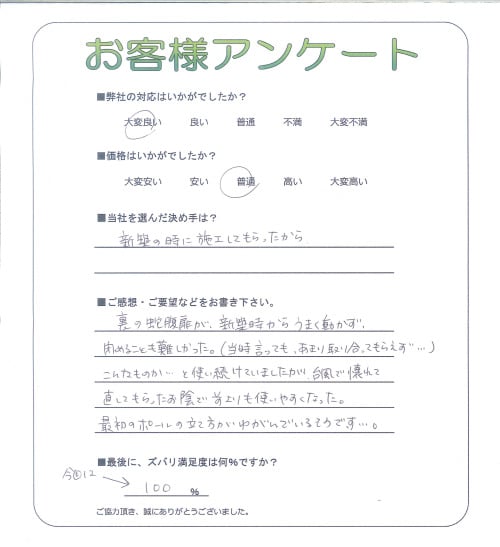 お客様アンケート
■弊社の対応はいかがでしたか？
大変良い 良い 普通 不満 大変不満
■価格はいかがでしたか？
大変安い 安い 普通 高い 大変高い
■当社を選んだ決め手は？
新築の時に施工してもらったから
■ご感想・ご要望などをお書き下さい。
裏の蛇腹扉が、新築時からうまく動かず、
閉めることも難しかった。(当時言っても、あまり取り合ってもらえず…)
こんなものか…と使い続けていましたが、台風で壊れて
直してもらったお陰で前よりも使いやすくなった。
最初のポールの立て方がゆがんでいるそうです…。
■最後に、ズバリ満足度は何%ですか？
100 %
ご協力頂き、誠にありがとうございました。